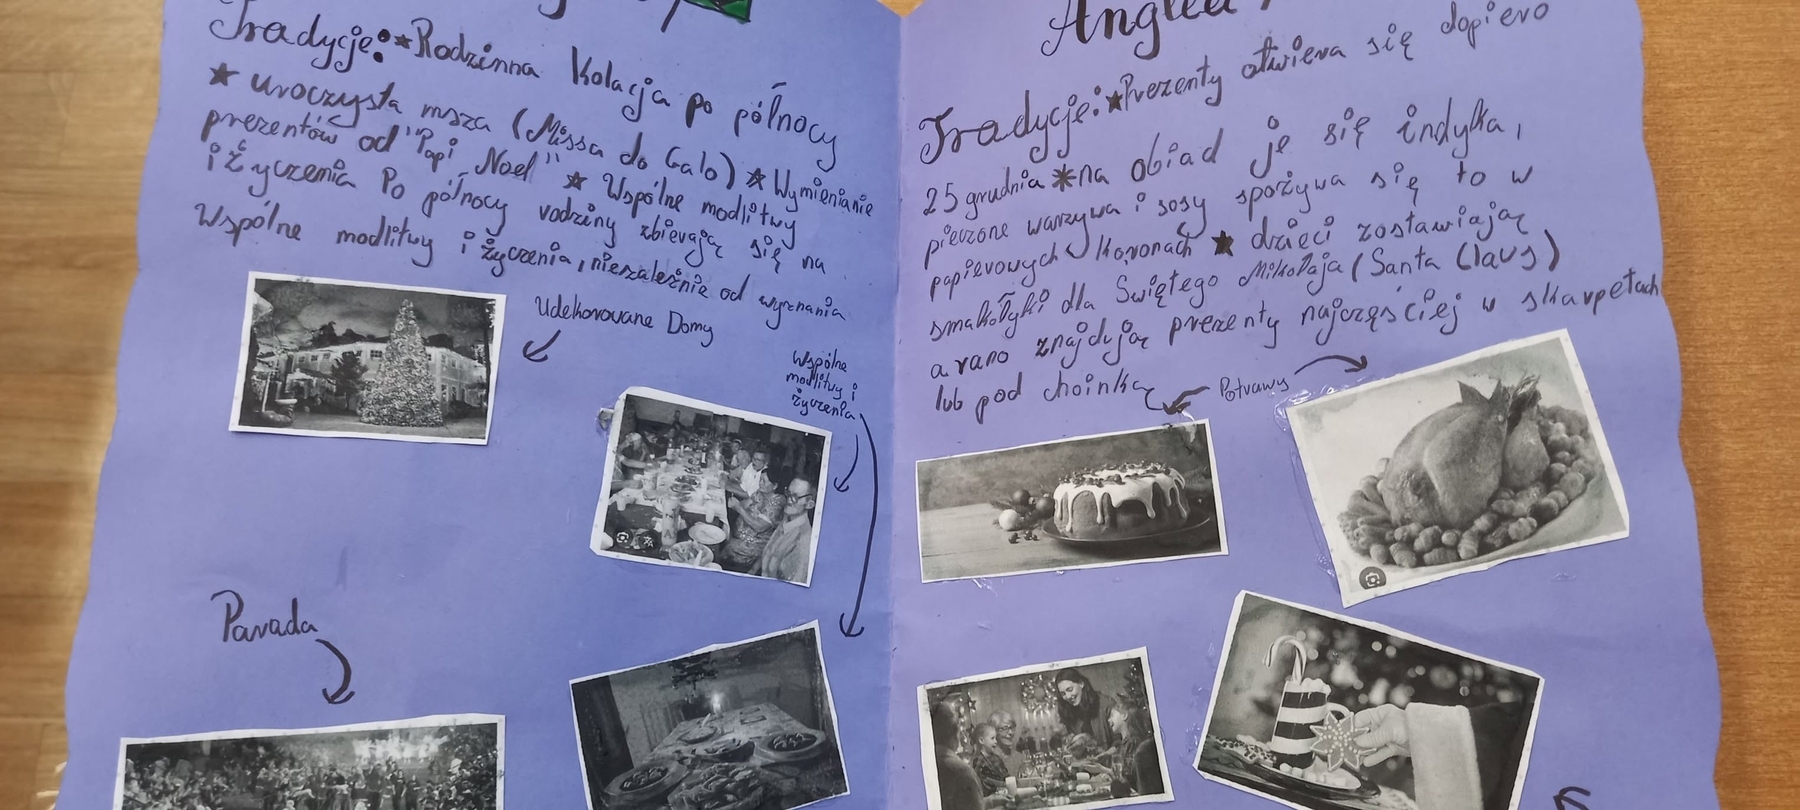 Tradycje: ★Rodzinna kolacja po północy
★ uroczysta msza (Missa do Galo) ★ Wymienianie
prezentów od "Papi Noel" ★ Wspólne modlitwy
i życzenia Po północy rodziny zbierają się na
Wspólne modlitwy i życzenia, niezależnie od wyznania
Udekorowane Domy
Wspólne
modlitwy i
życzenia
Parada
Anglia
Tradycje: ★Prezenty otwiera się dopiero
25 grudnia ★na obiad je się indyka,
pieczone warzywa i sosy spożywa się to w
papierowych koronach ★ dzieci zostawiają
smakołyki dla Świętego Mikołaja (Santa Claus)
a rano znajdują prezenty najczęściej w skarpetach
lub pod choinką
Potrawy